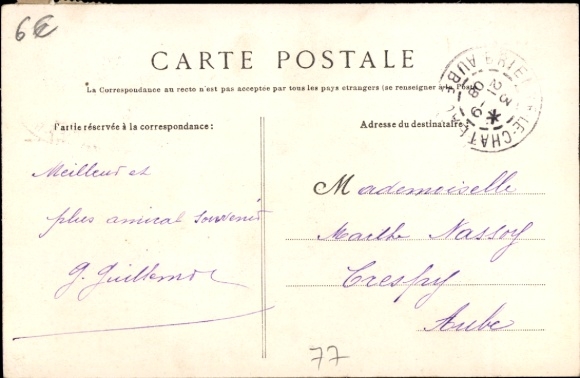 6€
CARTE POSTALE
*La Correspondance au recto n'est pas acceptée par tous les pays étrangers (se renseigner à la Poste)
Partie réservée à la correspondance :
Adresse du destinataire
BRIENNE-LE-CHATEAU
AUBE
Meilleur et
plus amical souvenir
G. Guillemot
Mademoiselle
Marthe Nassoy
Crespy
Aube
77